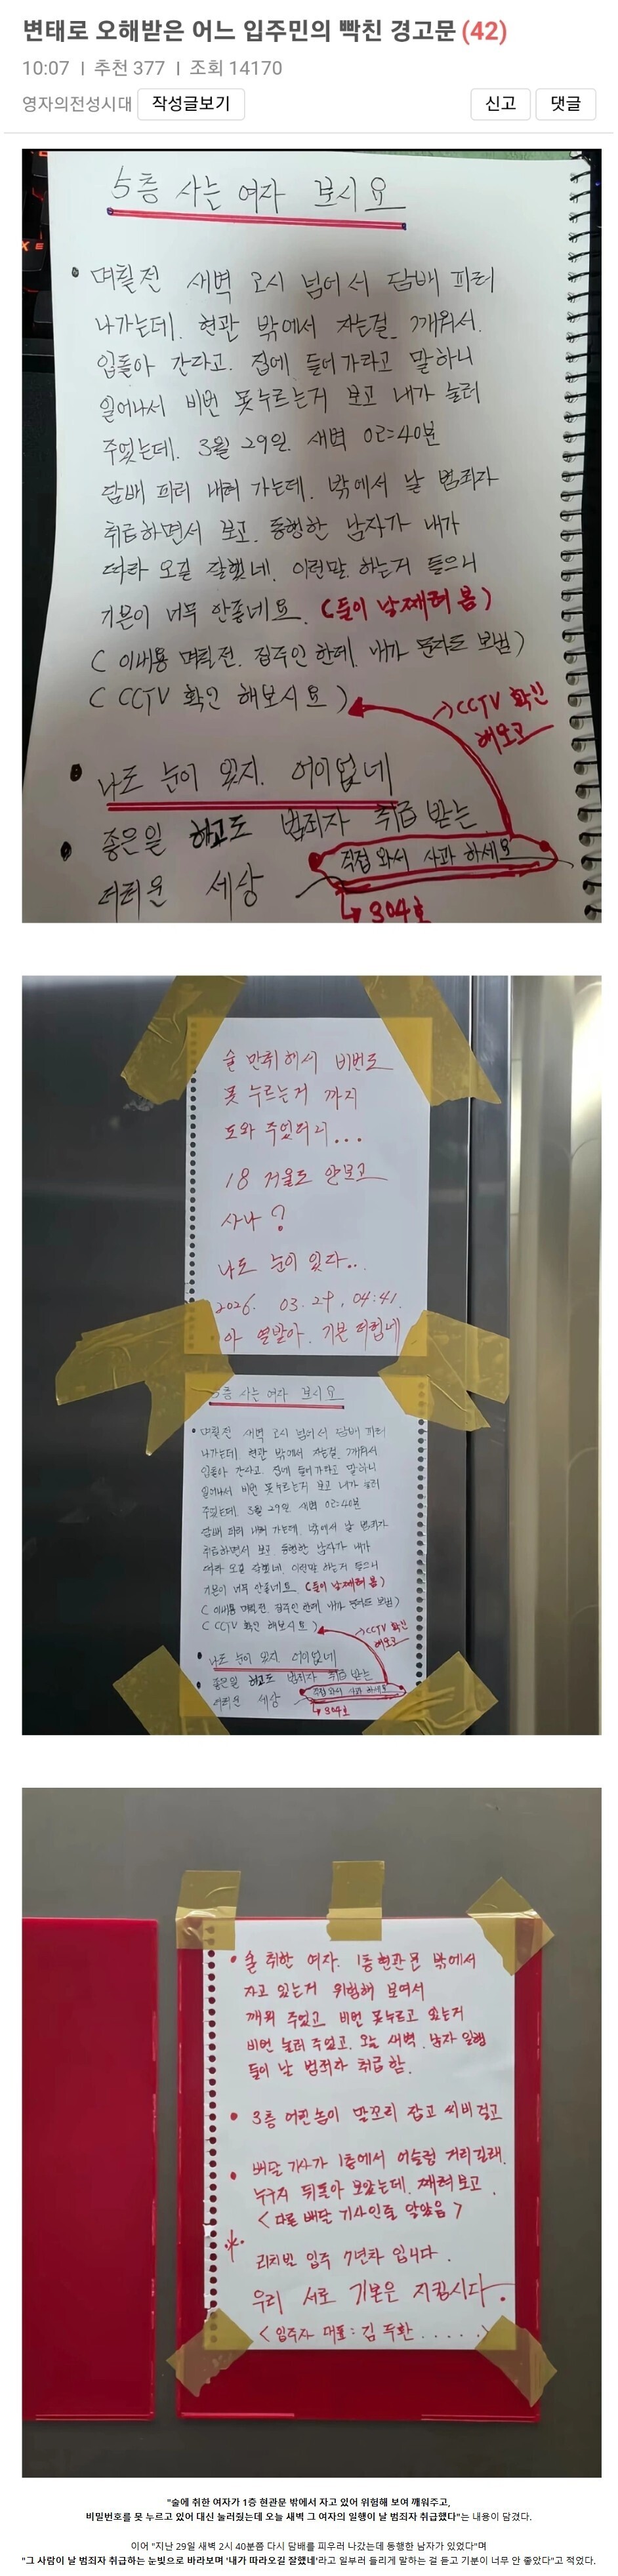 변태로 오해받은 어느 입주민의 빡친 경고문 (42)
10:07 | 추천 377 | 조회 14170
영자의전성시대 작성글보기 신고 댓글
5층 사는 여자 보시요
• 며칠전 새벽 2시 넘어서 담배 피러
나가는데. 현관 밖에서 자는걸 깨워서.
입돌아 간라고. 집에 들어가라고 말하니
일어나서 비번 못누르는거 보고 내가 눌러
주웠는데. 3월 29일. 새벽 02:40분
담배 피러 내려 가는데. 밖에서 날 범죄자
취급하면서 보고. 동행한 남자가 내가
따라 오길 잘했네. 이런말 하는거 들으니
기분이 너무 안좋네요. (들이 날째려 봄)
( 이내용 며칠전. 집주인 한테. 내가 문자도 보냄)
( CCTV 확인 해보시요 )
→ CCTV 확인
해보고
• 나도 눈이 있지. 어이없네
• 좋은일 하고도 범죄자 취급 받는
더러운 세상
직접 와서 사과 하세요
304호
술 만취해서 비번도
못 누르는거 까지
도와 주었더니...
18 거울도 안보고
사나?
나도 눈이 있다..
2026. 03. 29, 04:41.
아 열받아. 기분 더럽네
5층 사는 여자 보시요
• 며칠전 새벽 2시 넘어서 담배 피러
나가는데. 현관 밖에서 자는걸 깨워서.
입돌아 간라고. 집에 들어가라고 말하니
일어나서 비번 못누르는거 보고 내가 눌러
주웠는데. 3월 29일. 새벽 02:40분
담배 피러 내려 가는데. 밖에서 날 범죄자
취급하면서 보고. 동행한 남자가 내가
따라 오길 잘했네. 이런말 하는거 들으니
기분이 너무 안좋네요. (들이 날째려 봄)
( 이내용 며칠전. 집주인 한테. 내가 문자도 보냄)
( CCTV 확인 해보시요 )
→ CCTV 확인
해보고
• 나도 눈이 있지. 어이없네
• 좋은일 하고도 범죄자 취급 받는
더러운 세상
직접 와서 사과 하세요
304호
• 술 취한 여자. 1층현관문 밖에서
자고 있는거 위험해 보여서
깨워 주었고 비번 못누르고 있는거
비번 눌러 주었고. 오늘 새벽. 남자 일행
들이 날 범죄자 취급함.
• 3층 어린놈이 말꼬리 잡고 씨비 걸고
• 배달 기사가 1층에서 어슬렁 거리길래.
누구지 뒤돌아 보았는데. 째려보고.
< 다른 배달 기사인줄 알았음 >
※ 리치빌 입주 7년차 입니다.
우리 서로 기본은 지킵시다.
< 입주자 대표 : 김두환 ..... >
"술에 취한 여자가 1층 현관문 밖에서 자고 있어 위험해 보여 깨워주고,
비밀번호를 못 누르고 있어 대신 눌러줬는데 오늘 새벽 그 여자의 일행이 날 범죄자 취급했다"는 내용이 담겼다.
이어 "지난 29일 새벽 2시 40분쯤 다시 담배를 피우러 나갔는데 동행한 남자가 있었다"며
"그 사람이 날 범죄자 취급하는 눈빛으로 바라보며 '내가 따라오길 잘했네'라고 일부러 들리게 말하는 걸 듣고 기분이 너무 안 좋았다"고 적었다.